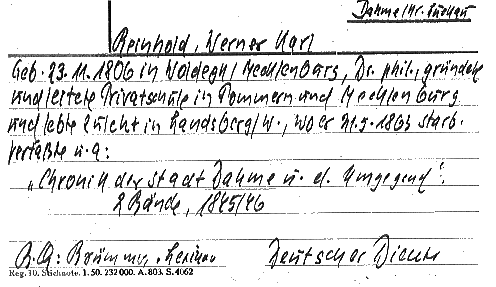 Dahme/Kr. Luckau
Reinhold, Werner Karl
Geb. 23.11.1806 in Woldegk/Mecklenburg, Dr. phil., gründete
und leitete Privatschule in Pommern und Mecklenburg
und lebte zuletzt in Landsberg/W., wo er 21.9.1863 starb.
Verfaßte u.a:
„Chronik der Stadt Dahme u. d. Umgegend".
2 Bände, 1845/46
B.Q: Brümmer, Lexikon Deutscher Dichter
Reg. 10. Stichnote. 1. 50. 232 000. A. 803. S. 4062